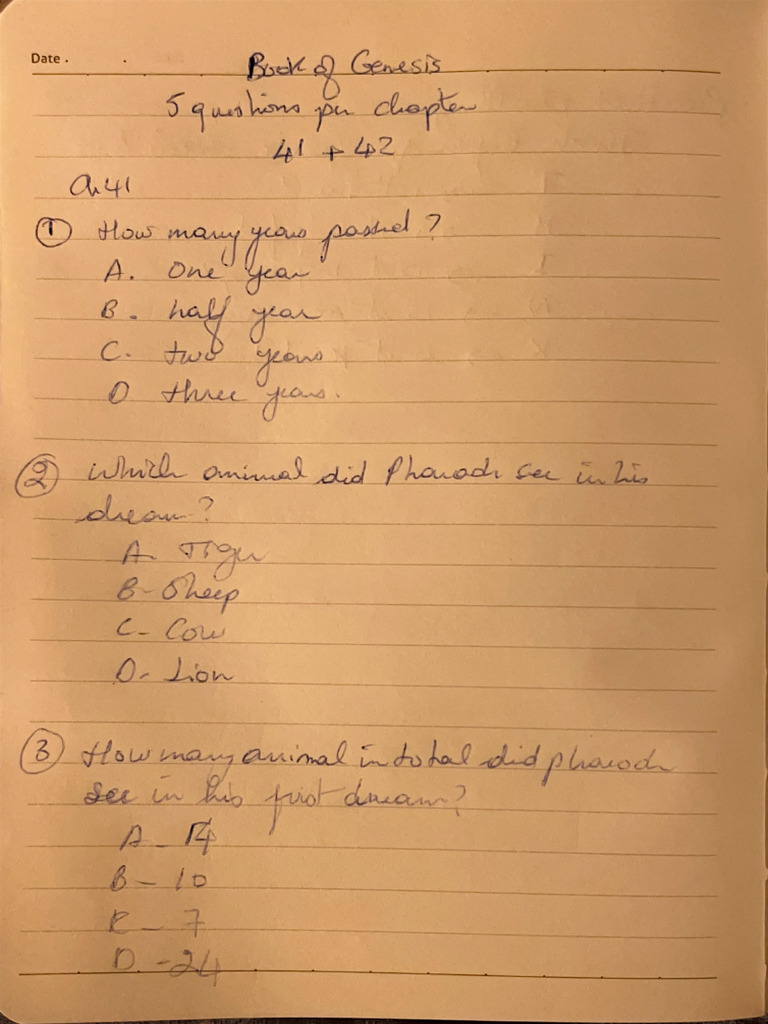 Date .
Book of Genesis
5 questions per chapter
41 + 42
Ch 41
① How many years passed?
A. One year
B. half year
C. two years
D three years.
② Which animal did Pharaoh see in his
dream?
A- Tiger
B- Sheep
C- Cow
D- Lion
③ How many animal in total did pharaoh
see in his first dream?
A - 14
B - 10
C - 7
D - 24